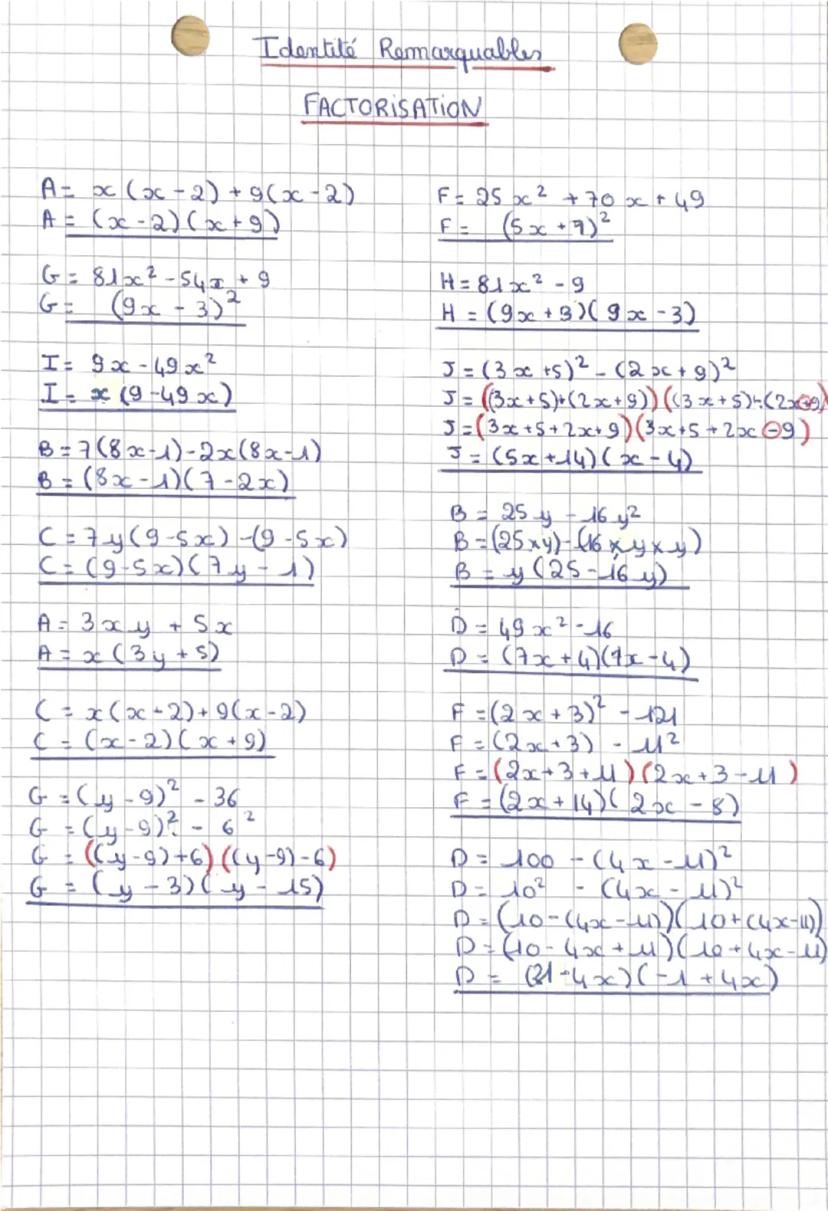 Identité Remarquables
FACTORISATION
A = x(x - 2) + 9(x - 2)
A = (x - 2)(x + 9)
G = 81x² - 54x + 9
G = (9x - 3)²
I = 9x - 49x²
I = x(9 - 49x)
B = 7(8x - 1) - 2x(8x - 1)
B = (8x - 1)(7 - 2x)
C = 7y(9 - 5x) - (9 - 5x)
C = (9 - 5x)(7y - 1)
A = 3xy + 5x
A = x(3y + 5)
C = x(x - 2) + 9(x - 2)
C = (x - 2)(x + 9)
G = (y - 9)² - 36
G = (y - 9)² - 6²
G = ((y - 9) + 6)((y - 9) - 6)
G = (y - 3)(y - 15)
F = 25x² + 70x + 49
F = (5x + 7)²
H = 81x² - 9
H = (9x + 3)(9x - 3)
J = (3x + 5)² - (2x + 9)²
J = ((3x + 5) + (2x + 9))((3x + 5) - (2x + 9)
J = (3x + 5 + 2x + 9)(3x + 5 + 2x - 9)
J = (5x + 14)(x - 4)
B = 25y - 16y²
B = (25 × y) - (16 × y × y)
B = y(25 - 16y)
D = 49x² - 16
D = (7x + 4)(7x - 4)
F = (2x + 3)² - 121
F = (2x + 3) - 11²
F = (2x + 3 + 11)(2x + 3 - 11)
F = (2x + 14)(2x - 8)
D = 100 - (4x - 11)²
D = 10² - (4x - 11)²
D = (10 - (4x - 11))(10 + (4x - 11))
D = (10 - 4x + 11)(10 + 4x - 11)
D = (21 - 4x)(-1 + 4x)